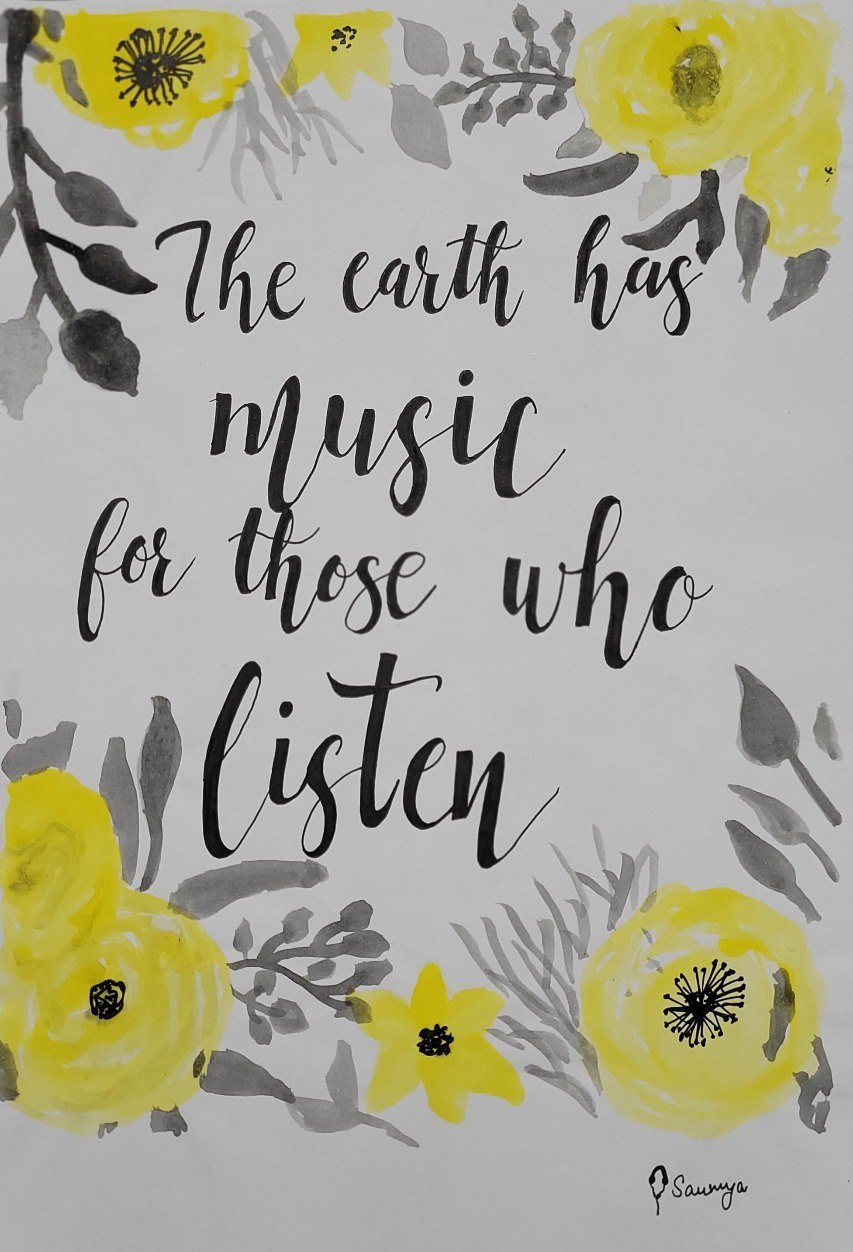 The earth has
music
for those who
listen
Saumya